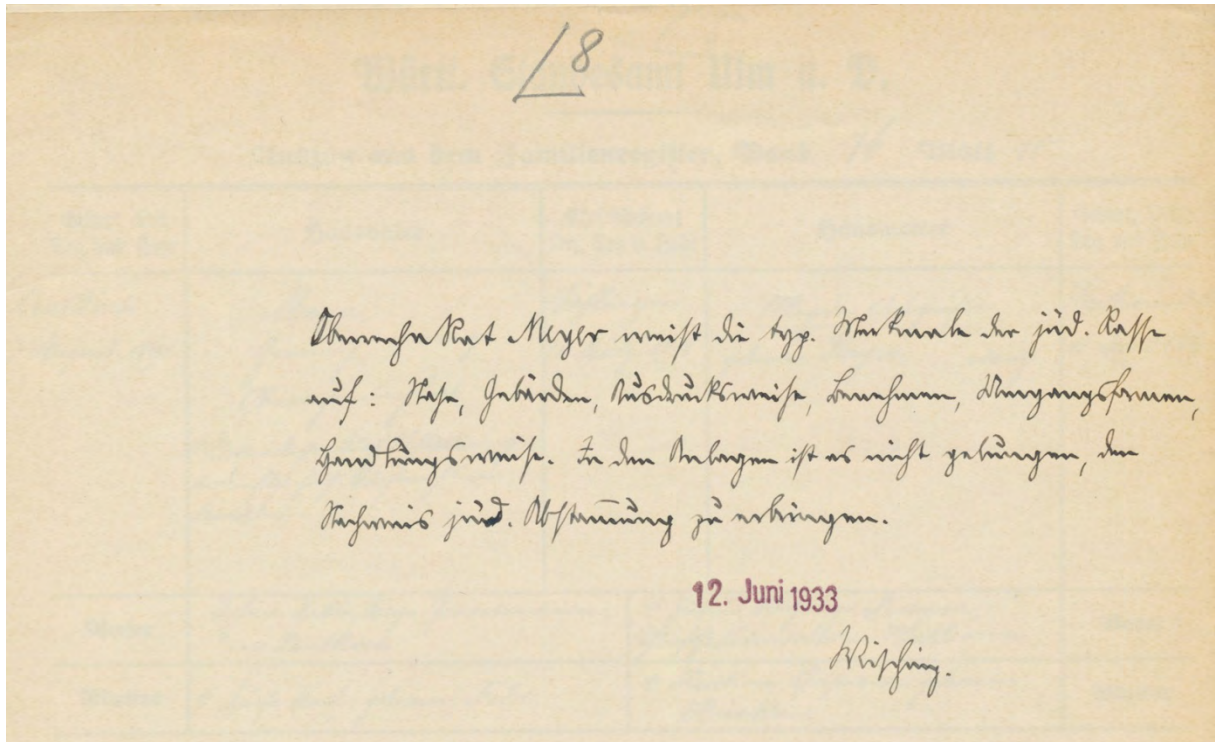 8
Oberrechn.Rat Meyer weist die typ. Merkmale der jüd. Rasse
auf: Nase, Gebärden, Ausdrucksweise, Benehmen, Umgangsformen,
Handlungsweise. In den Anlagen ist es nicht gelungen, den
Nachweis jüd. Abstammung zu erbringen.
12. Juni 1933